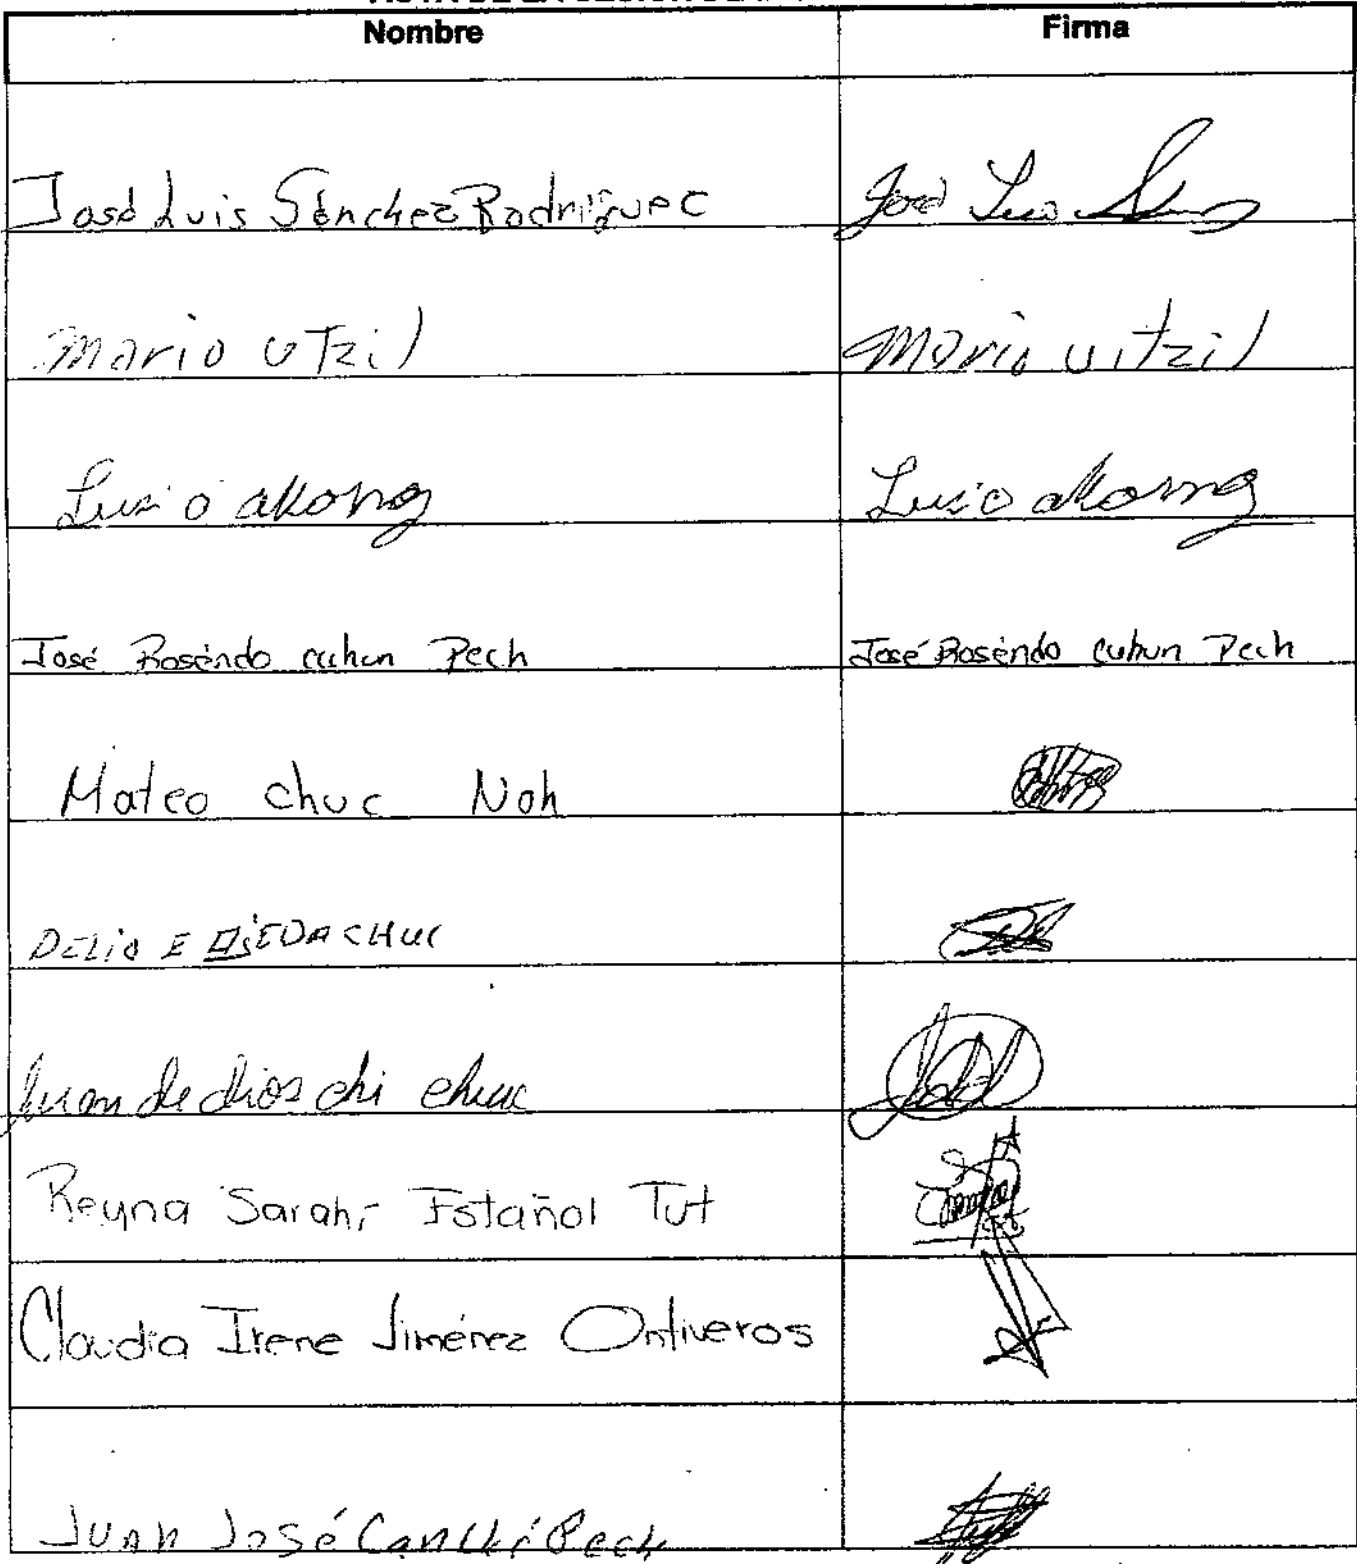 Nombre Firma
José Luis Sánchez Rodríguec José Luis
Mario UTzil Mario uitzil
Lucio akong Lucio akong
José Roséndo cuhun Pech José Roséndo cuhun Pech
Mateo chuc Noh
DELIO E CHUC
Juan de dios chi chuc
Reyna Sarahí Estañol Tut
Claudia Irene Jiménez Ontiveros
Juan José Canché Pech